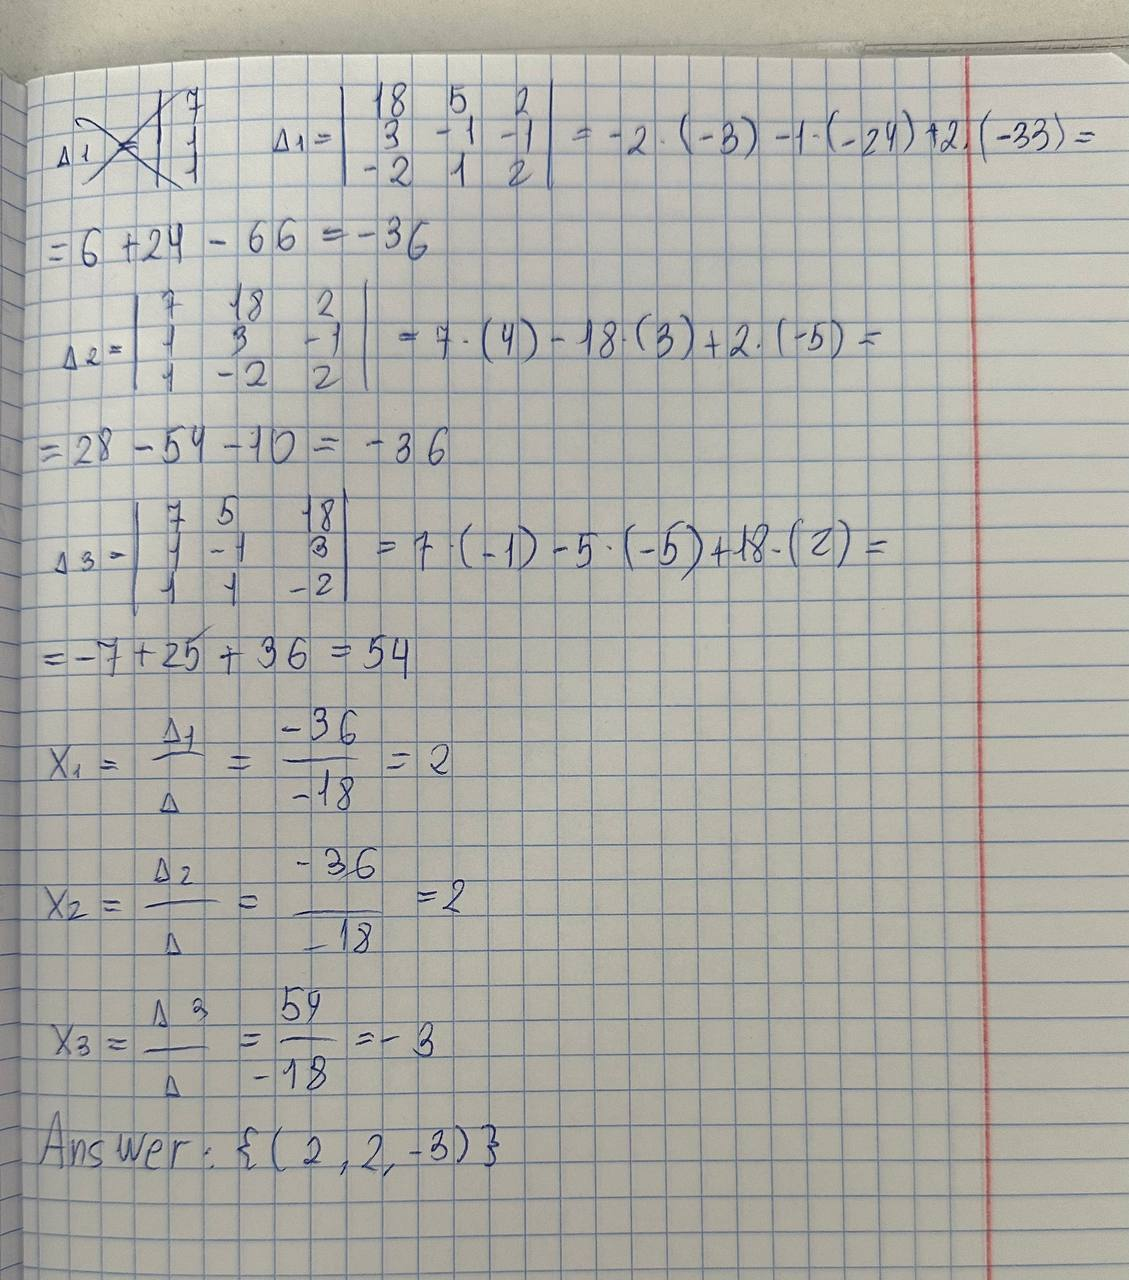 Δ1 = | 7 1 1
Δ1 = | 18 5 2 |
| 3 -1 -1 | = -2 · (-3) - 1 · (-24) + 2 · (-33) =
| -2 1 2 |
= 6 + 24 - 66 = -36
| 7 18 2 |
Δ2 = | 1 3 -1 | = 7 · (4) - 18 · (3) + 2 · (-5) =
| 1 -2 2 |
= 28 - 54 - 10 = -36
| 7 5 18 |
Δ3 = | 1 -1 3 | = 7 · (-1) - 5 · (-5) + 18 · (2) =
| 1 1 -2 |
= -7 + 25 + 36 = 54
X1 = Δ1/Δ = -36/-18 = 2
X2 = Δ2/Δ = -36/-18 = 2
X3 = Δ3/Δ = 54/-18 = -3
Answer: {(2, 2, -3)}